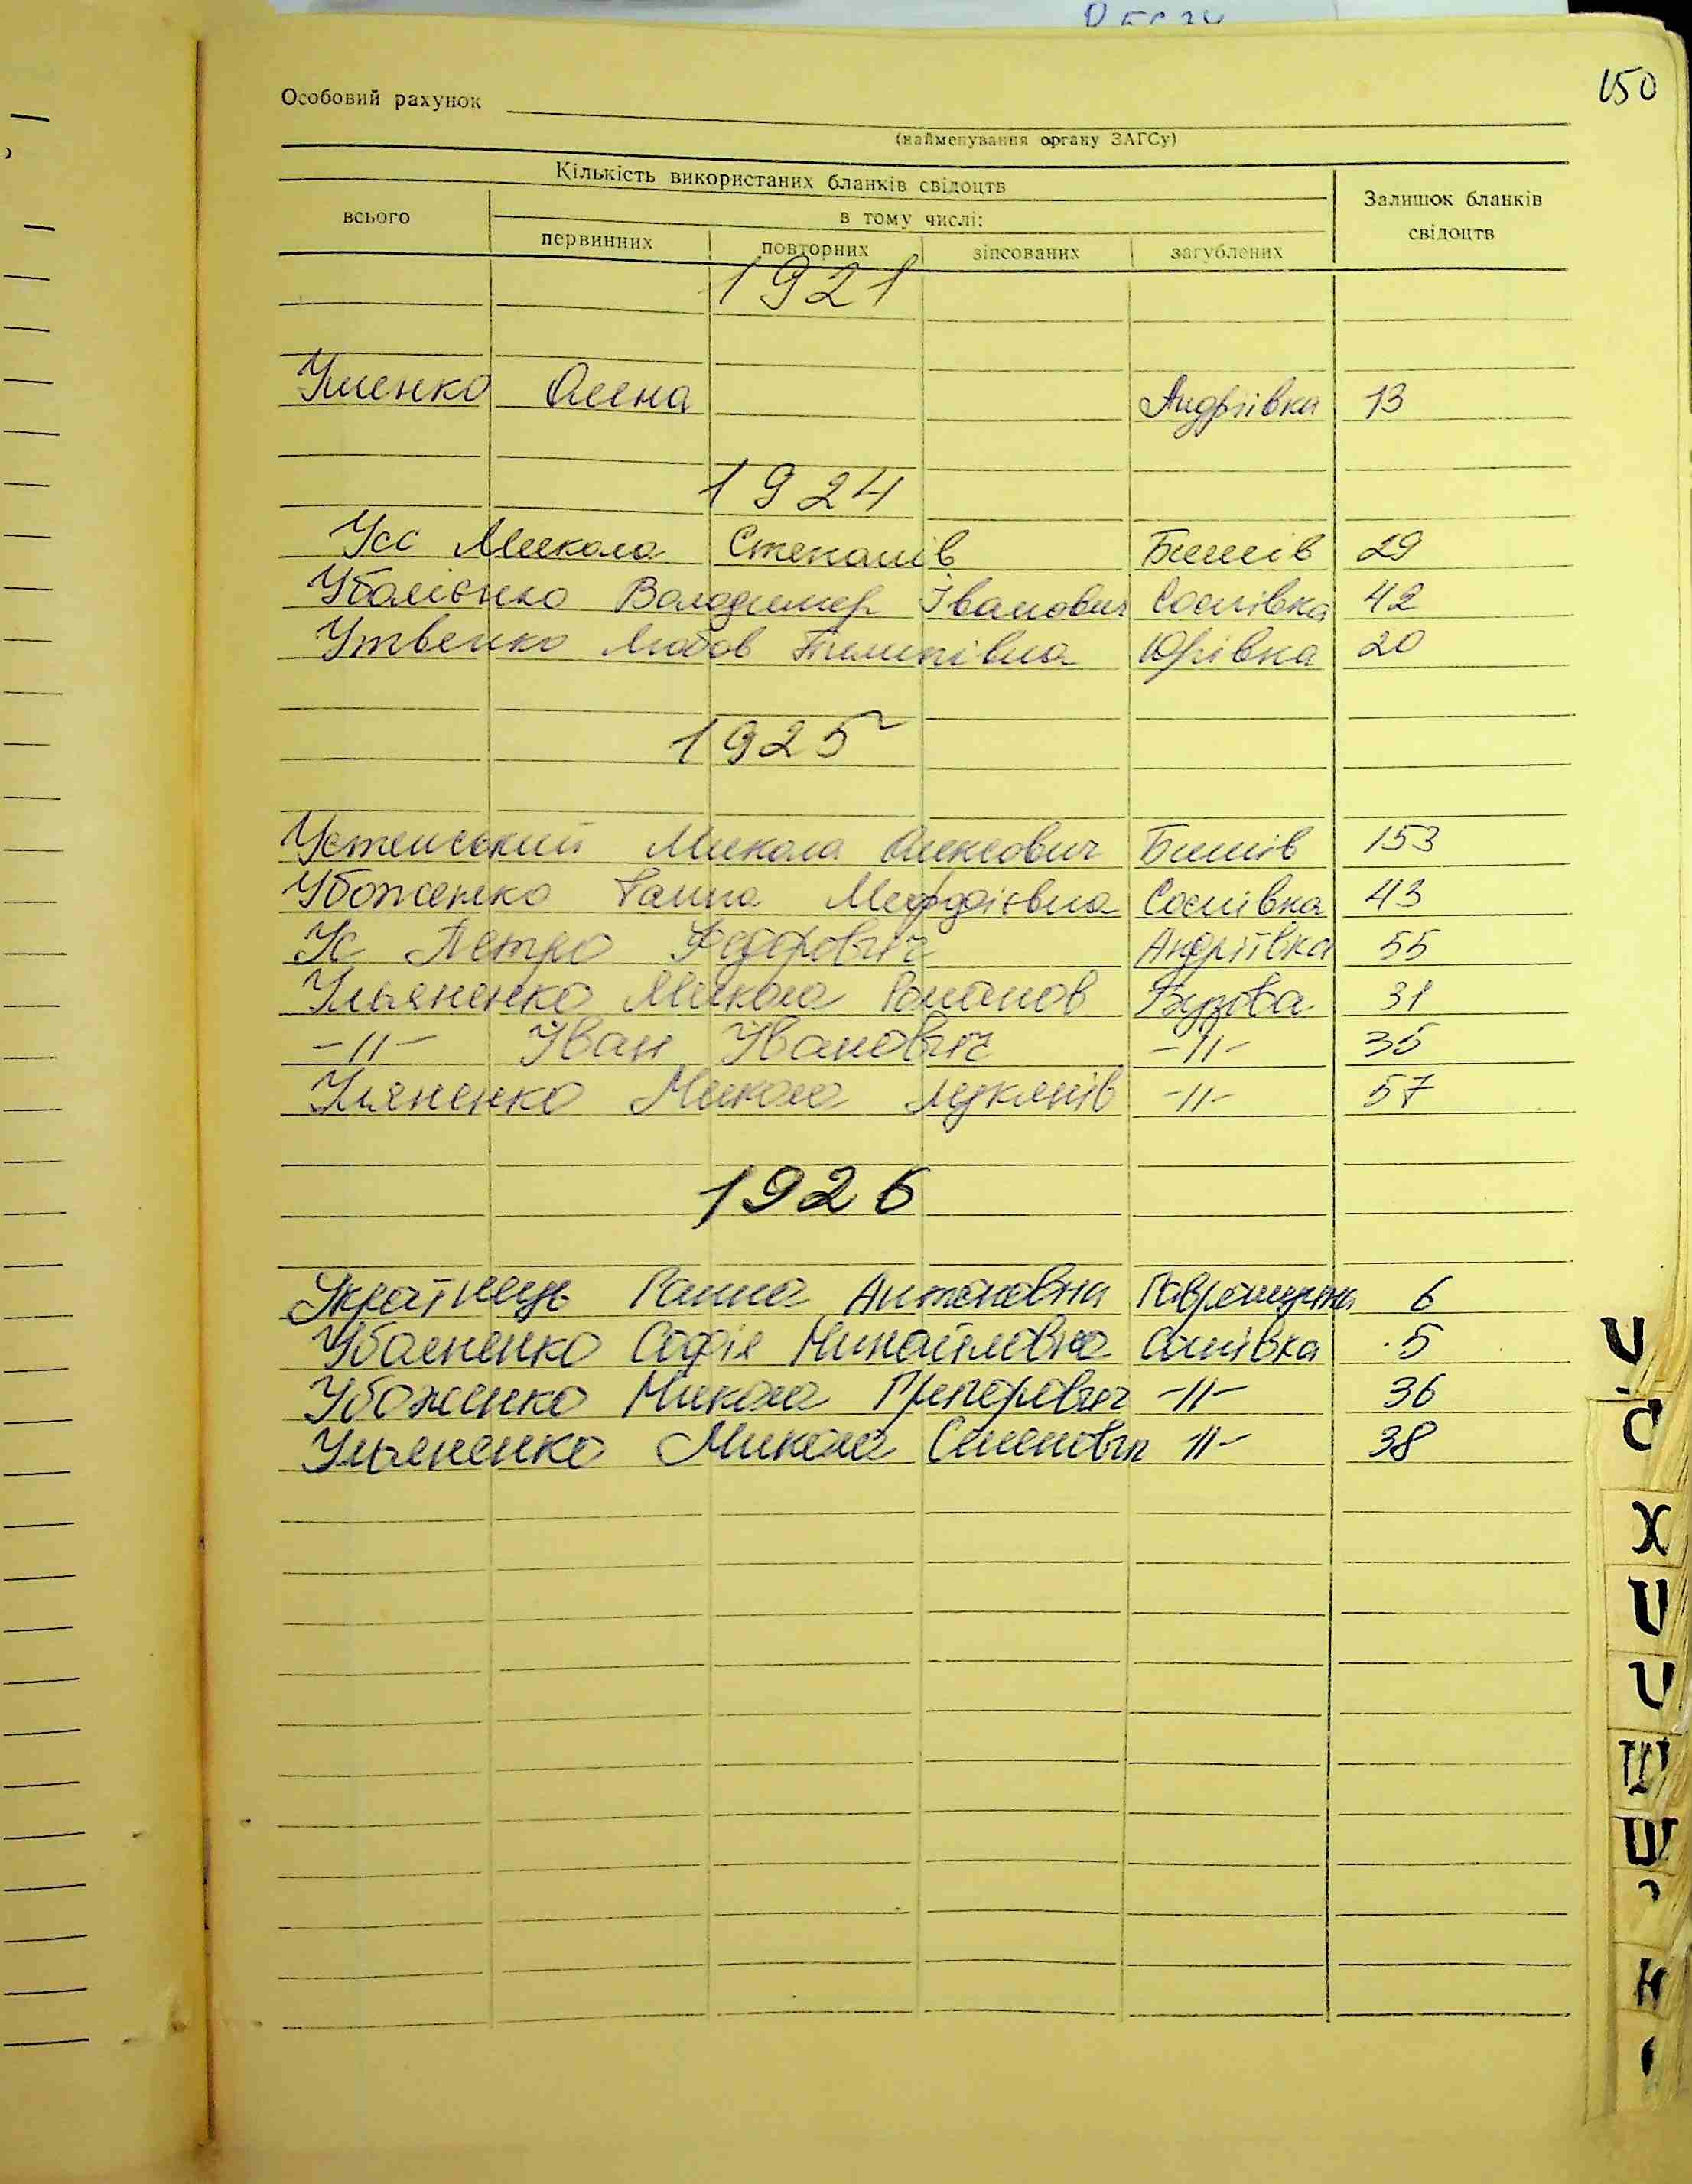 150
Особовий рахунок
(найменування органу ЗАГСу)
Кількість використаних бланків свідоцтв
Залишок бланків свідоцтв
всього
в тому числі:
первинних повторних зіпсованих загублених
1921
Уменко Олена Андріївка 13
1924
Усс Микола Степанів Бишів 29
Володимер Іванович Соснівка 42
Утвенко Любов Пилипівна Юрівка 20
1925
Успенський Микола Олексович Бишів 153
Убоженко Ганна Мефодіївна Соснівка 43
Ус Петро Федорович Андріївка 55
Ульяненко Микола Романов Бузова 31
-11- Іван Іванович -11- 35
Уляненко Микола Лукянів -11- 57
1926
Українець Ганна Антоновна 6
Софія Михайловна Соснівка 5
Убоженко Микола Григорович -11- 36
Ульяненко Микола Семенович -11- 38
У
Х